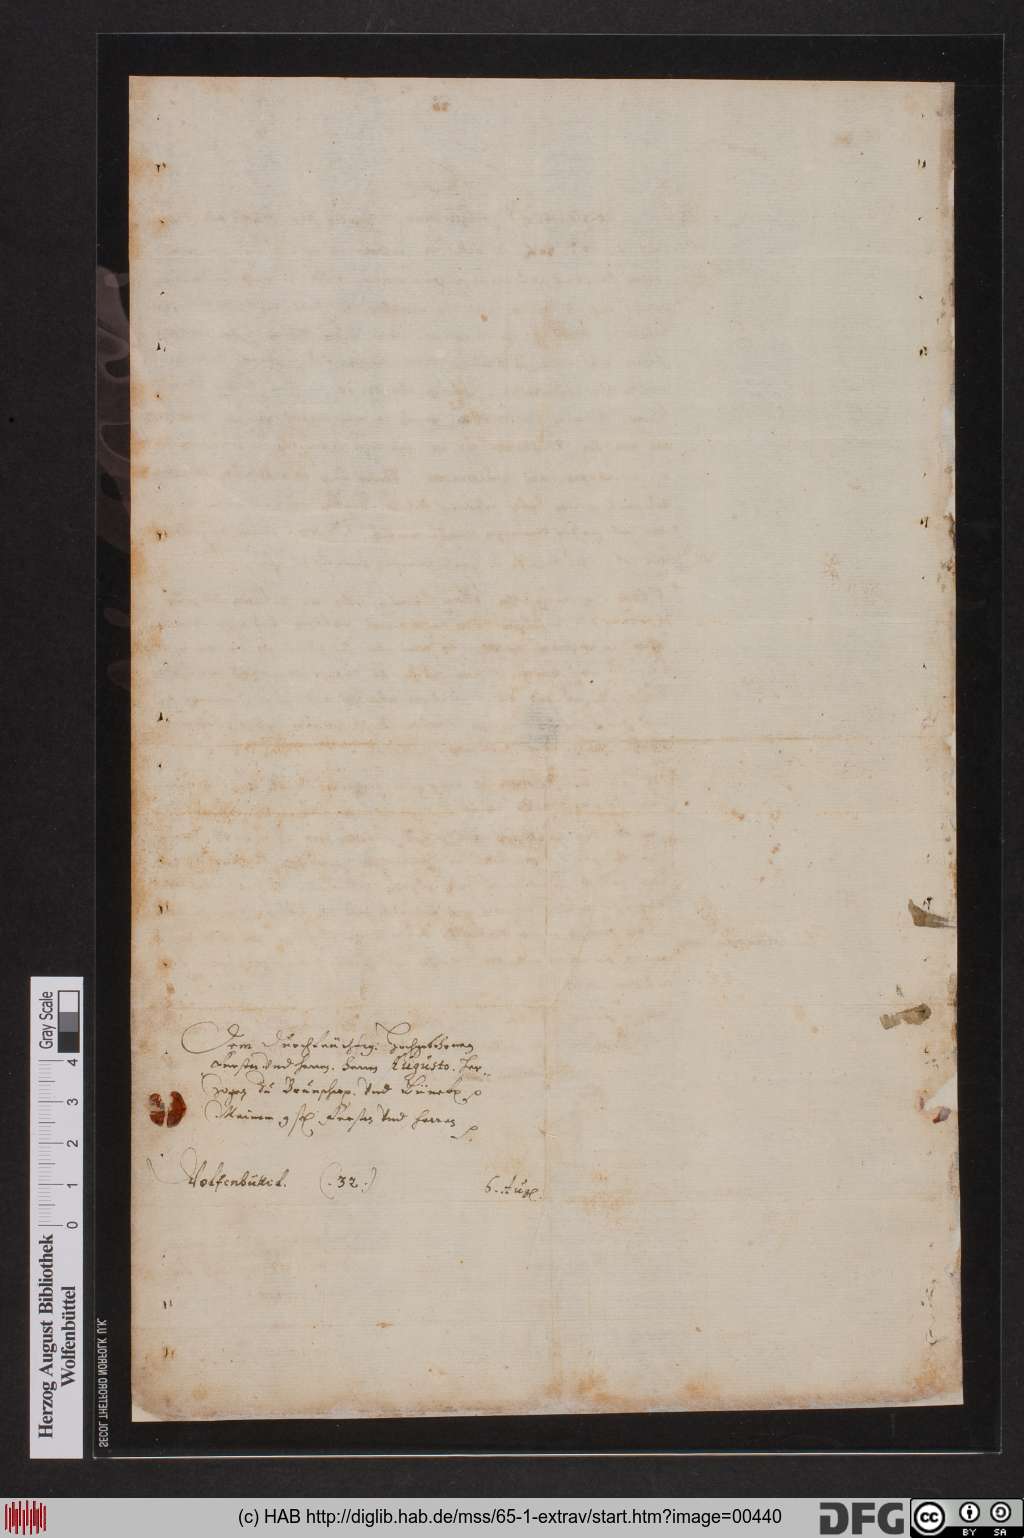 Dem Durchleuchtig: Hochgebohrnen
Fürsten und Herrn. Herrn Augusto. Her-
zogen zu Braunschw. und Lüneb.
Meinem g. Fürsten und Herren
Wolfenbüttel. (:32:) 6. Aug.
Gray Scale
4 3 2 1 0
Herzog August Bibliothek
Wolfenbüttel
SECOL THETFORD NORFOLK U.K.
(c) HAB http://diglib.hab.de/mss/65-1-extrav/start.htm?image=00440
DFG
cc
BY SA